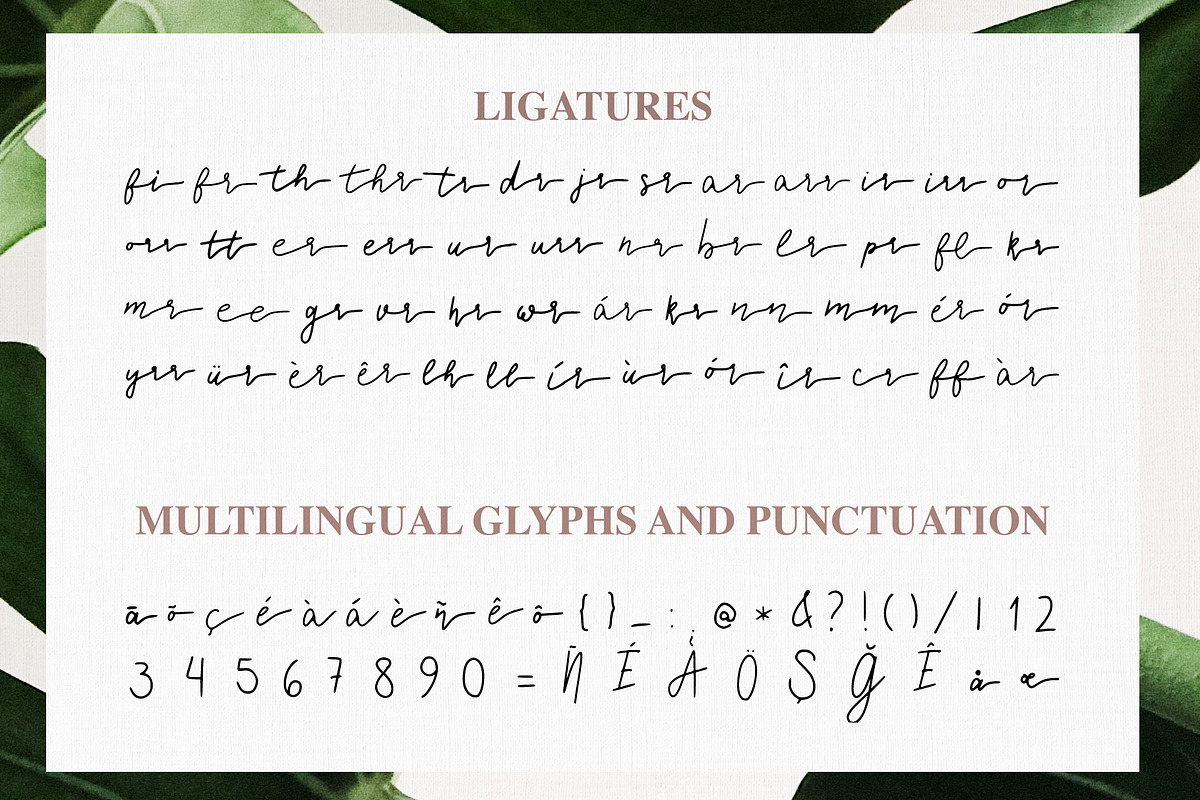 LIGATURES
fi fr th thr tr dr jr sr ar arr ir irr or
orr tt er err ur urr nr br lr pr fl kr
mr ee gr vr hr wr ár kr nn mm ér ór
yrr ür èr êr lh ll ír ùr ór îr cr ff àr
MULTILINGUAL GLYPHS AND PUNCTUATION
ā õ ç é à á è ñ ê ô { } _ : ; @ * & ? ! ( ) / | 1 2
3 4 5 6 7 8 9 0 = Ñ É À Ö Ş Ğ Ê å æ